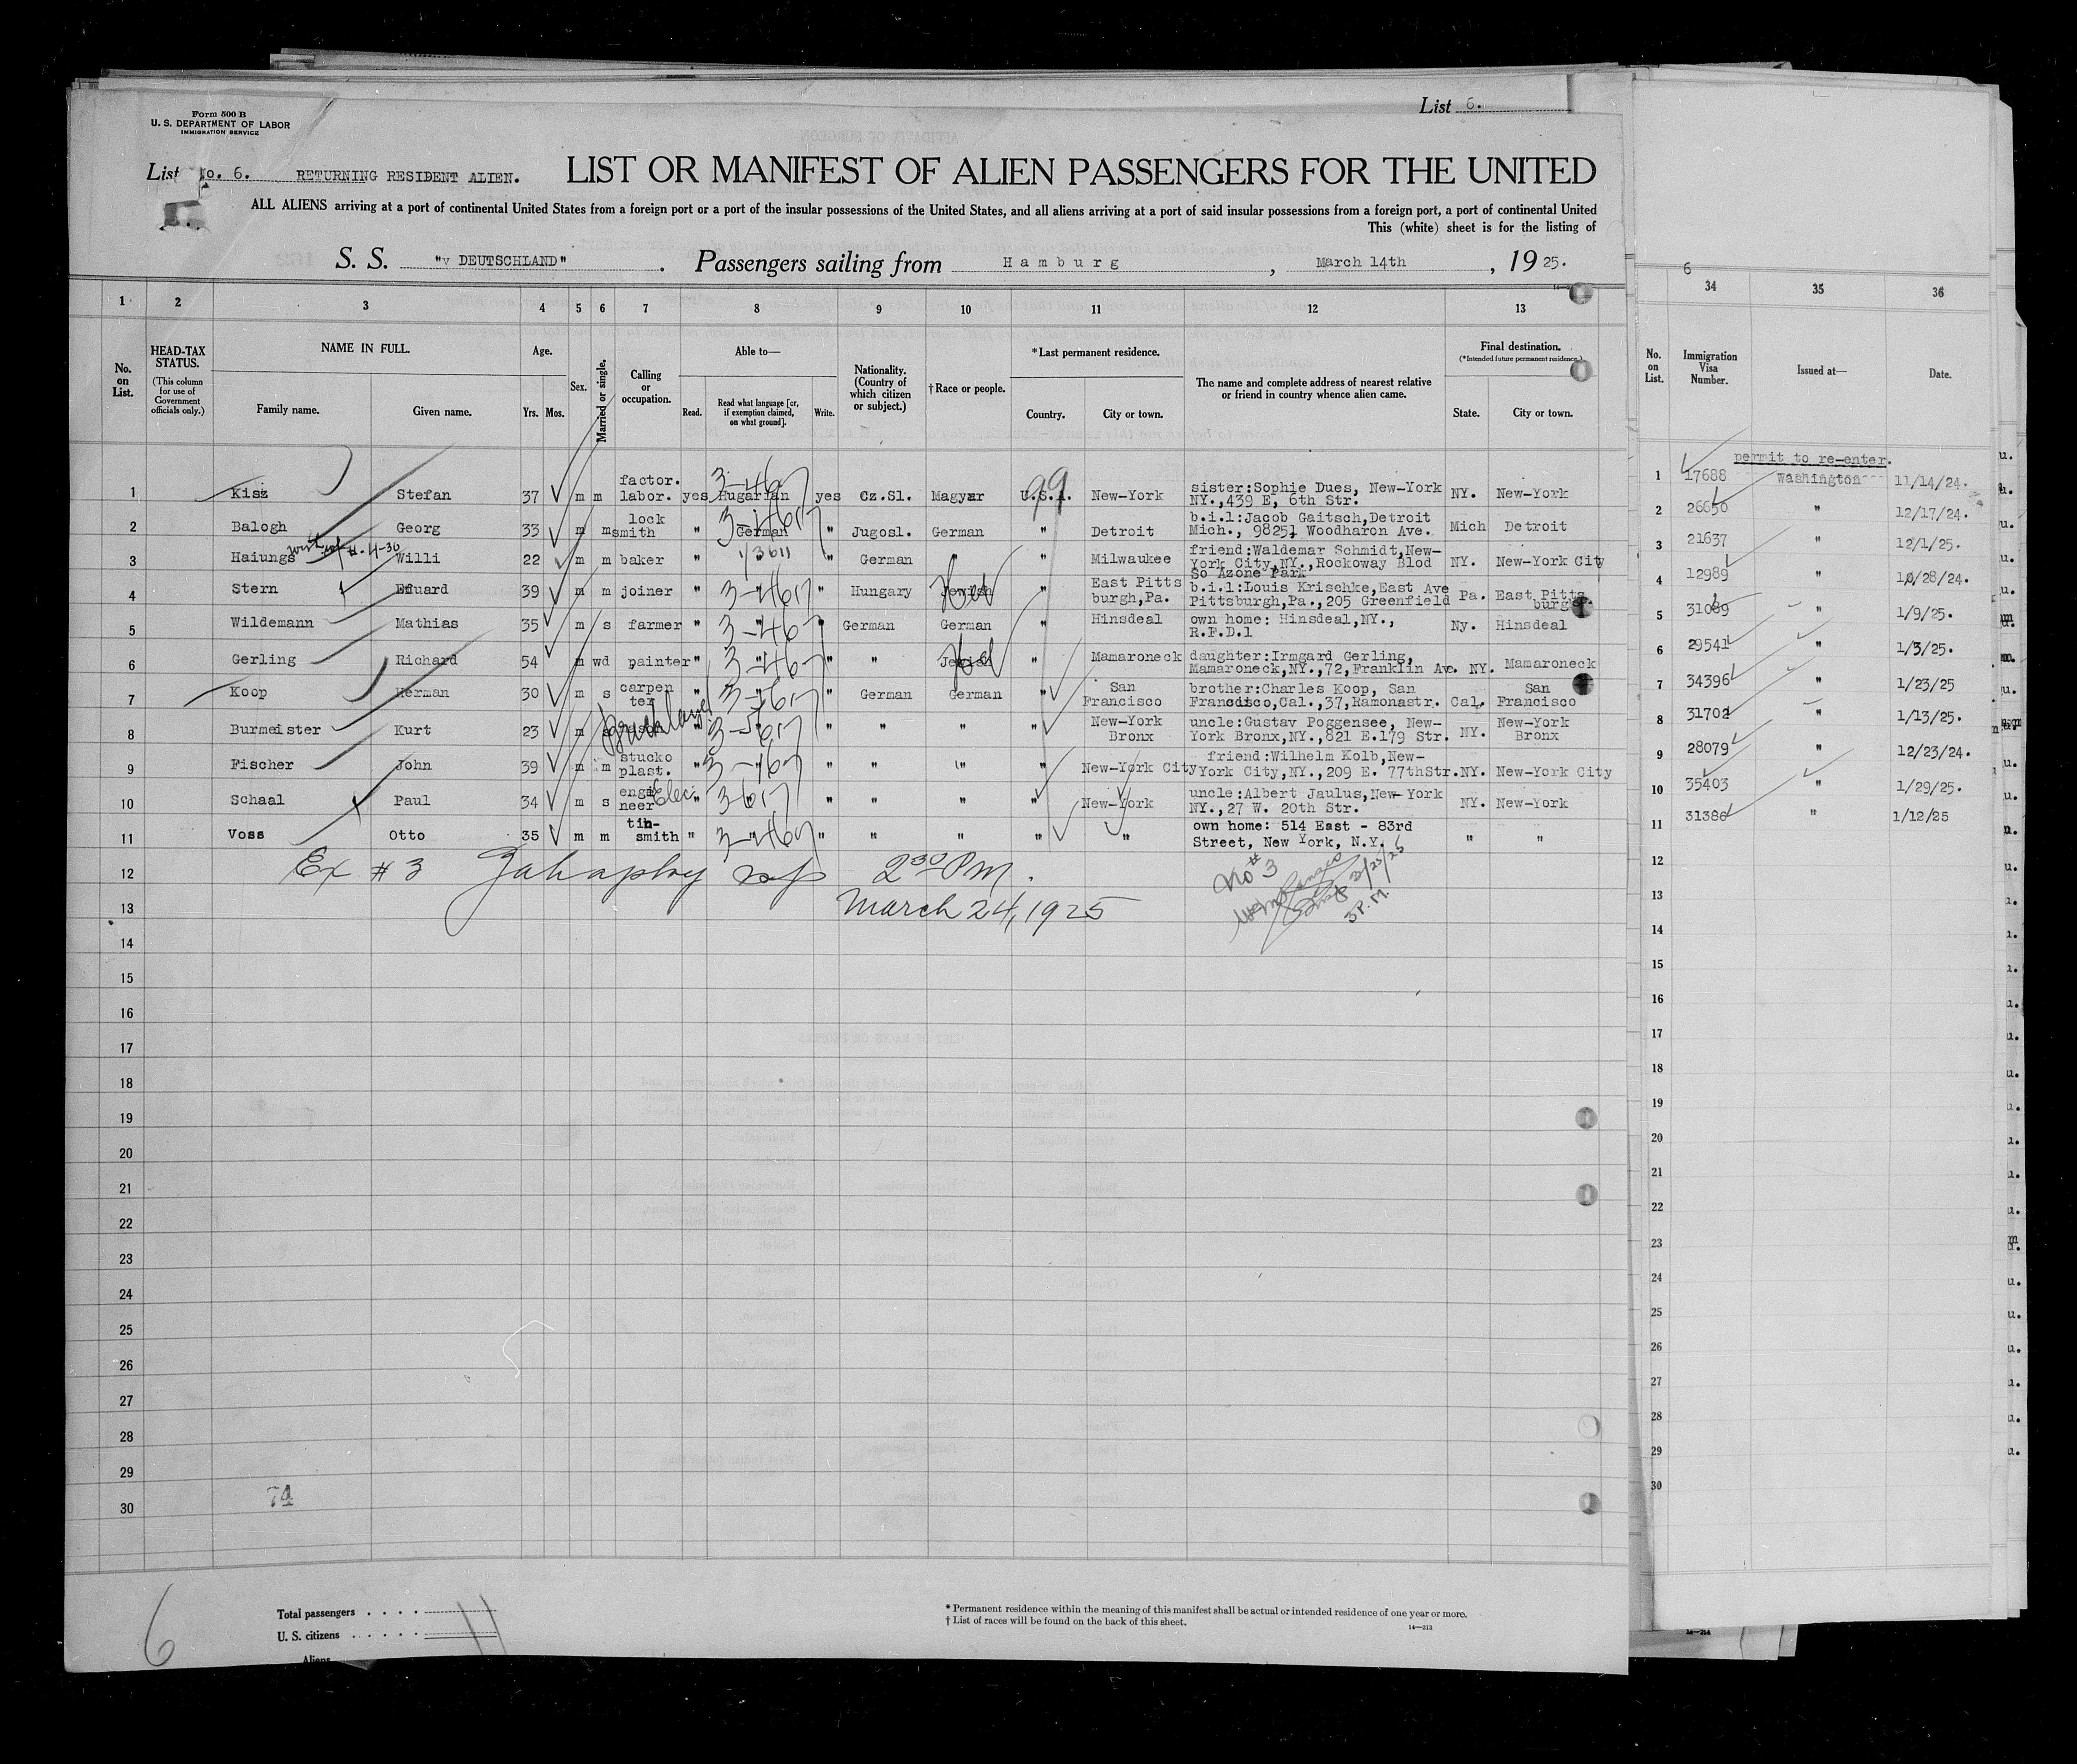 List 6.
Form 500 B
U. S. DEPARTMENT OF LABOR
IMMIGRATION SERVICE
List No. 6. RETURNING RESIDENT ALIEN. LIST OR MANIFEST OF ALIEN PASSENGERS FOR THE UNITED
ALL ALIENS arriving at a port of continental United States from a foreign port or a port of the insular possessions of the United States, and all aliens arriving at a port of said insular possessions from a foreign port, a port of continental United
This (white) sheet is for the listing of
S. S. "v DEUTSCHLAND". Passengers sailing from Hamburg, March 14th, 1925.
1 2 3 4 5 6 7 8 9 10 11 12 13
No. on List.
HEAD-TAX STATUS. (This column for use of Government officials only.)
NAME IN FULL. Family name. Given name.
Age. Yrs. Mos.
Sex.
Married or single.
Calling or occupation.
Able to— Read. Read what language [or, if exemption claimed, on what ground]. Write.
Nationality. (Country of which citizen or subject.)
†Race or people.
*Last permanent residence. Country. City or town.
The name and complete address of nearest relative or friend in country whence alien came.
Final destination. (*Intended future permanent residence.) State. City or town.
1 Kisz Stefan 37 m m factor. labor. yes Hugarian yes Cz.Sl. Magyar U.S.A. New-York sister:Sophie Dues, New-York NY.,439 E, 6th Str. NY. New-York
3-467 99
2 Balogh Georg 33 m m lock smith " German " Jugosl. German " Detroit b.i.l:Jacob Gaitsch,Detroit Mich., 98251 Woodharon Ave. Mich Detroit
3 Haiungs Willi 22 m m baker " " " German " " Milwaukee friend:Waldemar Schmidt,New-York City,NY.,Rockoway Blod So Azone Park NY. New-York City
4 Stern Eduard 39 m m joiner " " " Hungary Jewish " East Pitts burgh,Pa. b.i.l:Louis Krischke,East Pittsburgh,Pa.,205 Greenfield Ave Pa. East Pitts burgh.
5 Wildemann Mathias 35 m s farmer " " " German German " Hinsdeal own home: Hinsdeal,NY., R.F.D.1 Ny. Hinsdeal
3-467
6 Gerling Richard 54 m wd painter " " " " Jewish " Mamaroneck daughter:Irmgard Gerling, Mamaroneck,NY.,72,Franklin Ave. NY. Mamaroneck
3-467
7 Koop Herman 30 m s carpen ter " " " German German " San Francisco brother:Charles Koop, San Francisco,Cal.,37,Ramonastr. Cal. San Francisco
8 Burmeister Kurt 23 m s " " " " " " New-York Bronx uncle:Gustav Poggensee, New-York Bronx,NY.,821 E.179 Str. NY. New-York Bronx
9 Fischer John 39 m m stucko plast. " " " " " " New-York City friend:Wilhelm Kolb,New-York City,NY.,209 E. 77thStr. NY. New-York City
10 Schaal Paul 34 m s engi neer Elec. " " " " " " New-York uncle:Albert Jaulus,New-York NY.,27 W. 20th Str. NY. New-York
11 Voss Otto 35 m m tin-smith " " " " " " " own home: 514 East - 83rd Street, New York, N.Y. " "
3-467
12 Ex # 3 2 30 P.M.
13 March 24, 1925
No # 3 3/25/25 3 P.M.
14
15
16
17
18
19
20
21
22
23
24
25
26
27
28
29
30
74
6
Total passengers 11
U. S. citizens
Aliens
* Permanent residence within the meaning of this manifest shall be actual or intended residence of one year or more.
† List of races will be found on the back of this sheet.
14—213
6
34 35 36
No. on List. Immigration Visa Number. Issued at— Date.
permit to re-enter.
1 17688 Washington 11/14/24.
2 26650 " 12/17/24.
3 21637 " 12/1/25.
4 12989 " 10/28/24.
5 31089 " 1/9/25.
6 29541 " 1/3/25.
7 34396 " 1/23/25
8 31702 " 1/13/25.
9 28079 " 12/23/24.
10 35403 " 1/29/25.
11 31386 " 1/12/25
12
13
14
15
16
17
18
19
20
21
22
23
24
25
26
27
28
29
30